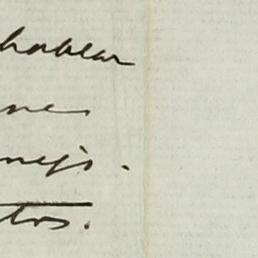 hablar
nes
nejo.
tos.